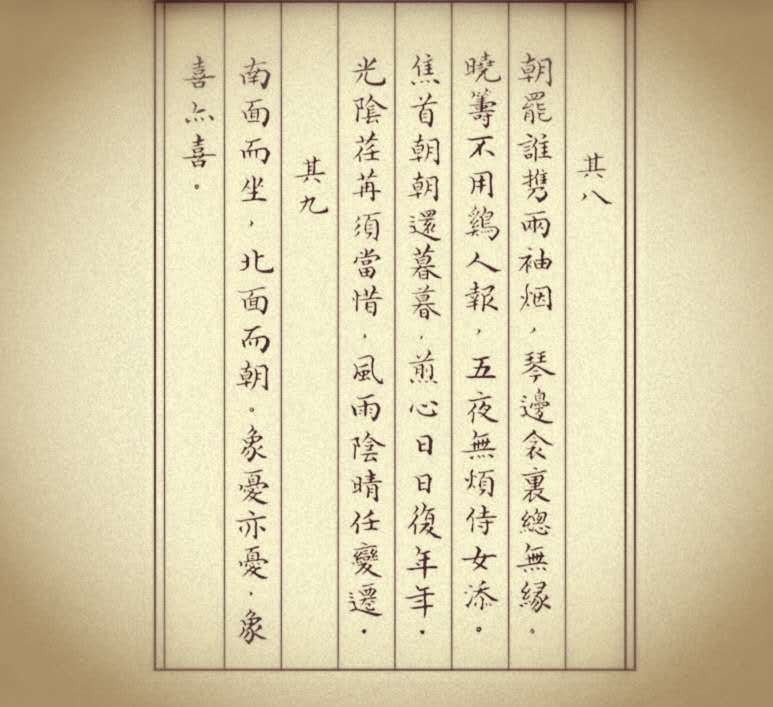 其八
朝罷誰携兩袖烟，琴邊衾裏總無緣。
曉籌不用鷄人報，五夜無煩侍女添。
焦首朝朝還暮暮，煎心日日復年年。
光陰荏苒須當惜，風雨陰晴任變遷。
其九
南面而坐，北面而朝。象憂亦憂，象
喜亦喜。